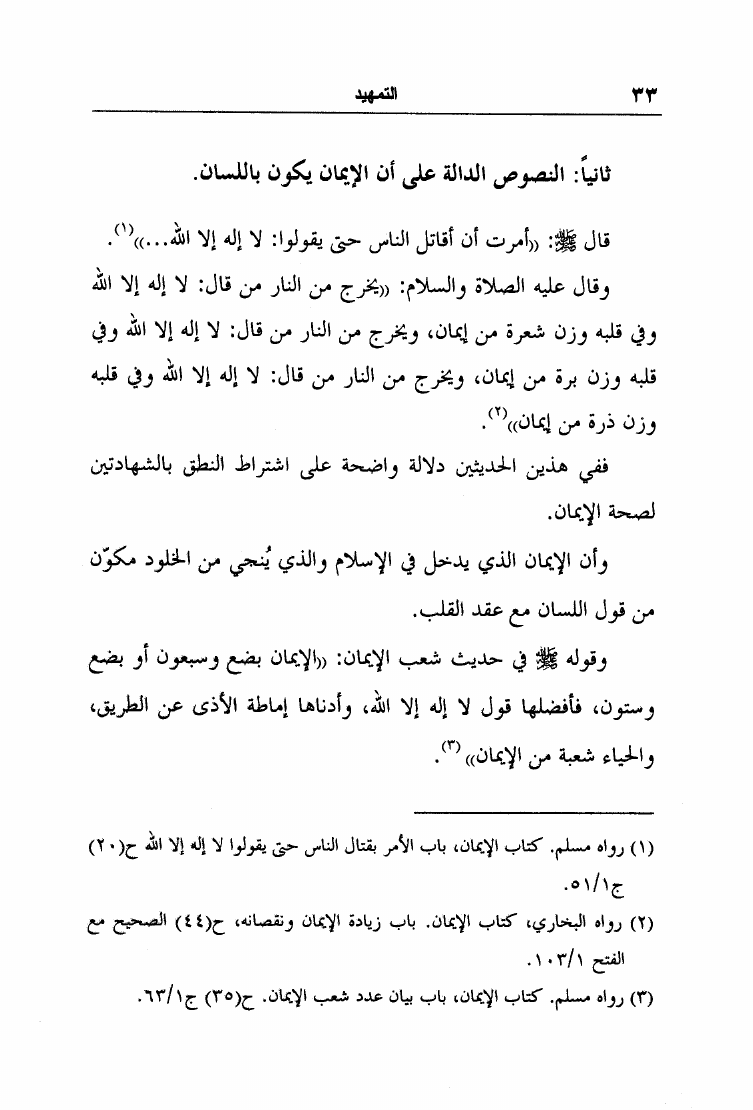 ٣٣ التمهيد
ثانياً: النصوص الدالة على أن الإيمان يكون باللسان.
قال ﷺ: ((أمرت أن أقاتل الناس حتى يقولوا: لا إله إلا الله...))(١).
وقال عليه الصلاة والسلام: ((يخرج من النار من قال: لا إله إلا الله
وفي قلبه وزن شعرة من إيمان، ويخرج من النار من قال: لا إله إلا الله وفي
قلبه وزن برة من إيمان، ويخرج من النار من قال: لا إله إلا الله وفي قلبه
وزن ذرة من إيمان))(٢).
ففي هذين الحديثين دلالة واضحة على اشتراط النطق بالشهادتين
لصحة الإيمان.
وأن الإيمان الذي يدخل في الإسلام والذي يُنجي من الخلود مكوّن
من قول اللسان مع عقد القلب.
وقوله ﷺ في حديث شعب الإيمان: ((الإيمان بضع وسبعون أو بضع
وستون، فأفضلها قول لا إله إلا الله، وأدناها إماطة الأذى عن الطريق،
والحياء شعبة من الإيمان))(٣).
(١) رواه مسلم. كتاب الإيمان، باب الأمر بقتال الناس حتى يقولوا لا إله إلا الله ح(٢٠)
ج٥١/١.
(٢) رواه البخاري، كتاب الإيمان. باب زيادة الإيمان ونقصانه، ح(٤٤) الصحيح مع
الفتح ١٠٣/١.
(٣) رواه مسلم. كتاب الإيمان، باب بيان عدد شعب الإيمان. ح(٣٥) ج٦٣/١.